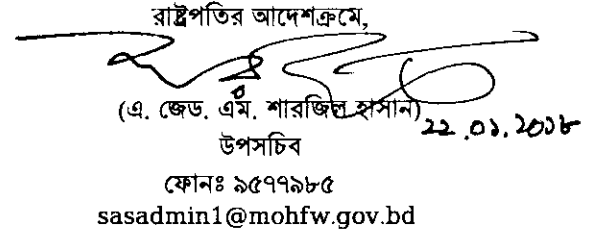 রাষ্ট্রপতির আদেশক্রমে,
(এ. জেড. এম. শারজিল হাসান)
২২.০১.২০১৮
উপসচিব
ফোনঃ ৯৫৭৭৯৮৫
sasadmin1@mohfw.gov.bd